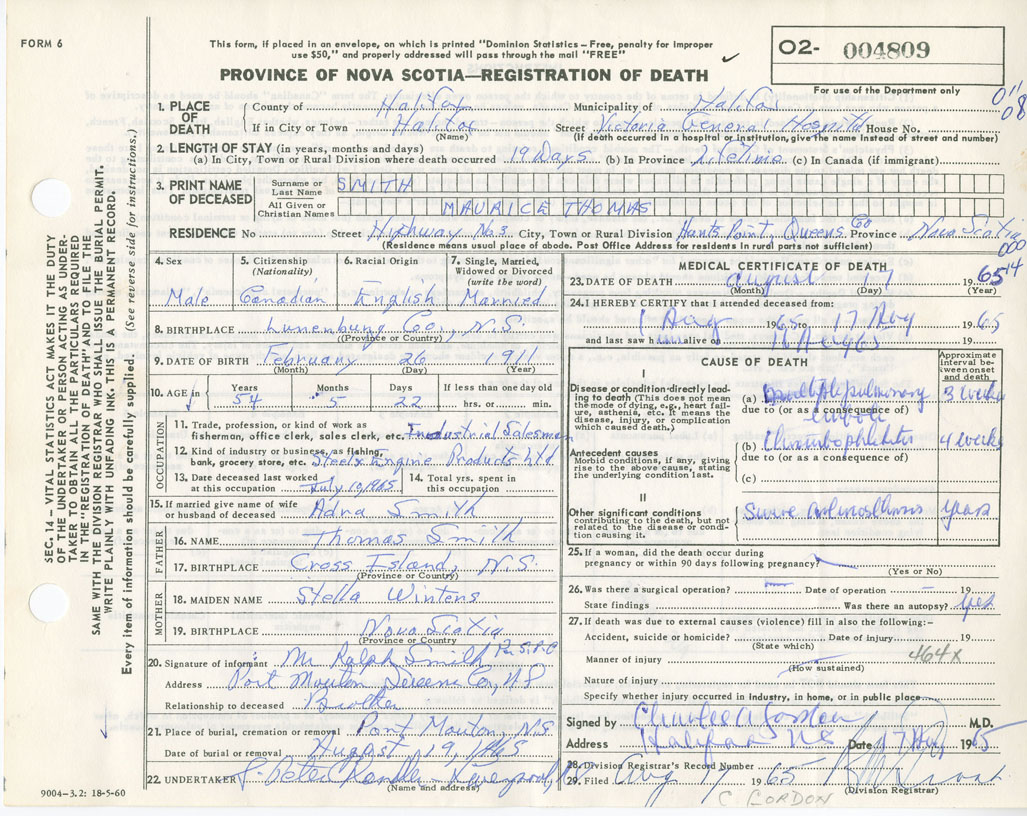 FORM 6
This form, if placed in an envelope, on which is printed "Dominion Statistics – Free, penalty for improper
use $50," and properly addressed will pass through the mail "FREE"
PROVINCE OF NOVA SCOTIA—REGISTRATION OF DEATH
02- 004809
For use of the Department only
1. PLACE OF DEATH
County of Halifax Municipality of Halifax
If in City or Town Halifax Street Victoria General Hospital House No.
(Name) (If death occurred in a hospital or institution, give the name instead of street and number)
2. LENGTH OF STAY (in years, months and days)
(a) In City, Town or Rural Division where death occurred 19 Days (b) In Province Lifetime (c) In Canada (if immigrant)
3. PRINT NAME OF DECEASED
Surname or Last Name SMITH
All Given or Christian Names MAURICE THOMAS
RESIDENCE No Street Highway No. 3 City, Town or Rural Division Hunts Point, Queens Co Province Nova Scotia
(Residence means usual place of abode. Post Office Address for residents in rural parts not sufficient)
4. Sex Male
5. Citizenship (Nationality) Canadian
6. Racial Origin English
7. Single, Married, Widowed or Divorced (write the word) Married
8. BIRTHPLACE Lunenburg Co., N.S.
(Province or Country)
9. DATE OF BIRTH February 26 1911
(Month) (Day) (Year)
10. AGE in Years 54 Months 5 Days 22 If less than one day old hrs. or min.
OCCUPATION
11. Trade, profession, or kind of work as
fisherman, office clerk, sales clerk, etc. Industrial Salesman
12. Kind of industry or business, as fishing,
bank, grocery store, etc. Steel & Engine Products Ltd
13. Date deceased last worked
at this occupation July 10, 1965
14. Total yrs. spent in
this occupation
15. If married give name of wife
or husband of deceased Adna Smith
FATHER
16. NAME Thomas Smith
17. BIRTHPLACE Cross Island, N.S.
(Province or Country)
MOTHER
18. MAIDEN NAME Stella Winters
19. BIRTHPLACE Nova Scotia
(Province or Country)
20. Signature of informant Mr Ralph Smith
Address Port Mouton Queens Co, N.S
Relationship to deceased Brother
21. Place of burial, cremation or removal Port Mouton, N.S.
Date of burial or removal August 19, 1965
22. UNDERTAKER
(Name and address)
9004–3.2: 18-5-60
MEDICAL CERTIFICATE OF DEATH
23. DATE OF DEATH August 17 1965
(Month) (Day) (Year)
24. I HEREBY CERTIFY that I attended deceased from:
1 Aug 1965 to 17 Aug 1965
and last saw him alive on 16 Aug 65
CAUSE OF DEATH
Approximate interval between onset and death
I
Disease or condition directly leading to death (This does not mean the mode of dying, e.g., heart failure, asthenia, etc. It means the disease, injury, or complication which caused death.)
(a) Multiple pulmonary emboli 3 weeks
due to (or as a consequence of)
Antecedent causes
Morbid conditions, if any, giving rise to the above cause, stating the underlying condition last.
(b) Thrombophlebitis 4 weeks
due to (or as a consequence of)
(c)
II
Other significant conditions
contributing to the death, but not related to the disease or condition causing it.
Severe arteriosclerosis years
25. If a woman, did the death occur during
pregnancy or within 90 days following pregnancy?
(Yes or No)
26. Was there a surgical operation? Date of operation 19
State findings Was there an autopsy? Yes
27. If death was due to external causes (violence) fill in also the following:-
Accident, suicide or homicide? Date of injury 19
(State which)
464X
Manner of injury
(How sustained)
Nature of injury
Specify whether injury occurred in industry, in home, or in public place
Signed by Charles A Gordon M.D.
Address Halifax NS Date 17 Aug 1965
28. Division Registrar's Record Number
29. Filed Aug 17 1965
(Division Registrar)
C GORDON
SEC. 14 – VITAL STATISTICS ACT MAKES IT THE DUTY
OF THE UNDERTAKER OR PERSON ACTING AS UNDER-
TAKER TO OBTAIN ALL THE PARTICULARS REQUIRED
IN THE "REGISTRATION OF DEATH" AND TO FILE THE
SAME WITH THE DIVISION REGISTRAR WHO SHALL ISSUE THE BURIAL PERMIT.
WRITE PLAINLY WITH UNFADING INK–THIS IS A PERMANENT RECORD.
Every item of information should be carefully supplied. (See reverse side for instructions.)